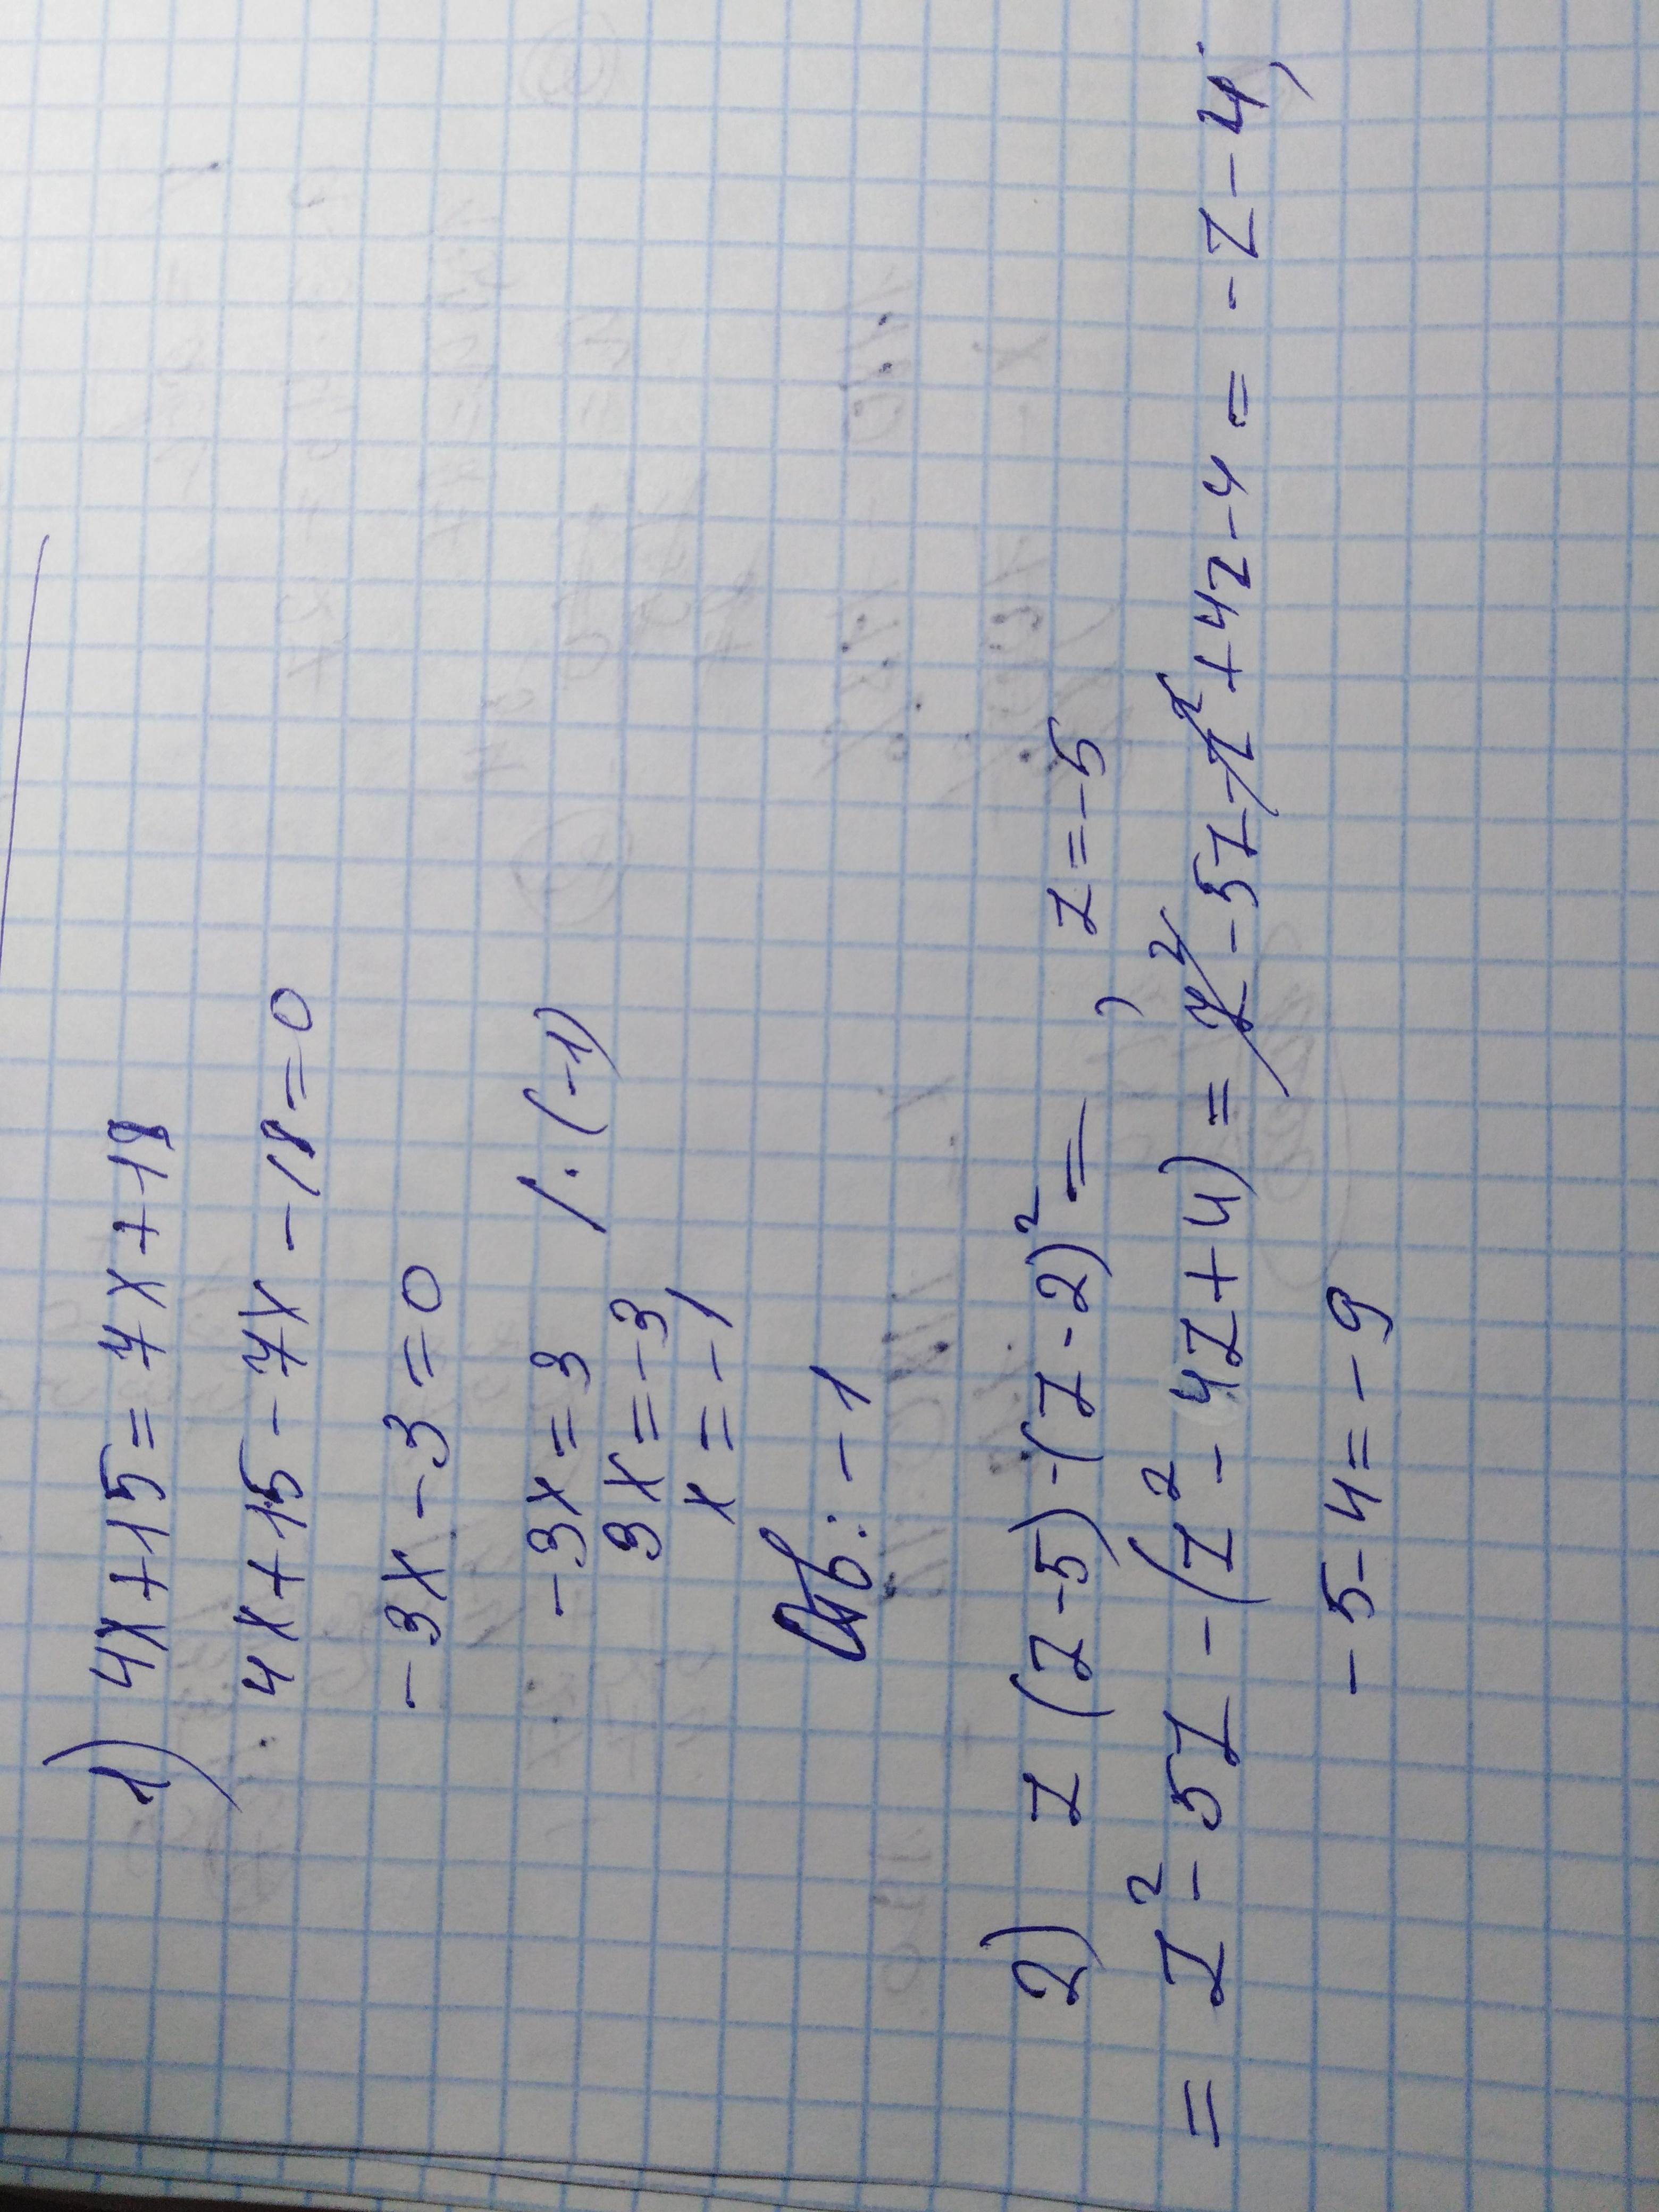 1) 4x+15=7x+18
4x+15-7x-18=0
-3x-3=0
-3x=3 /·(-1)
3x=-3
x=-1
Отв: -1
2) z(z-5)-(z-2)²= , z=-5
= z²-5z-(z²-4z+4)= z²-5z-z²+4z-4= -z-4;
-5-4=-9